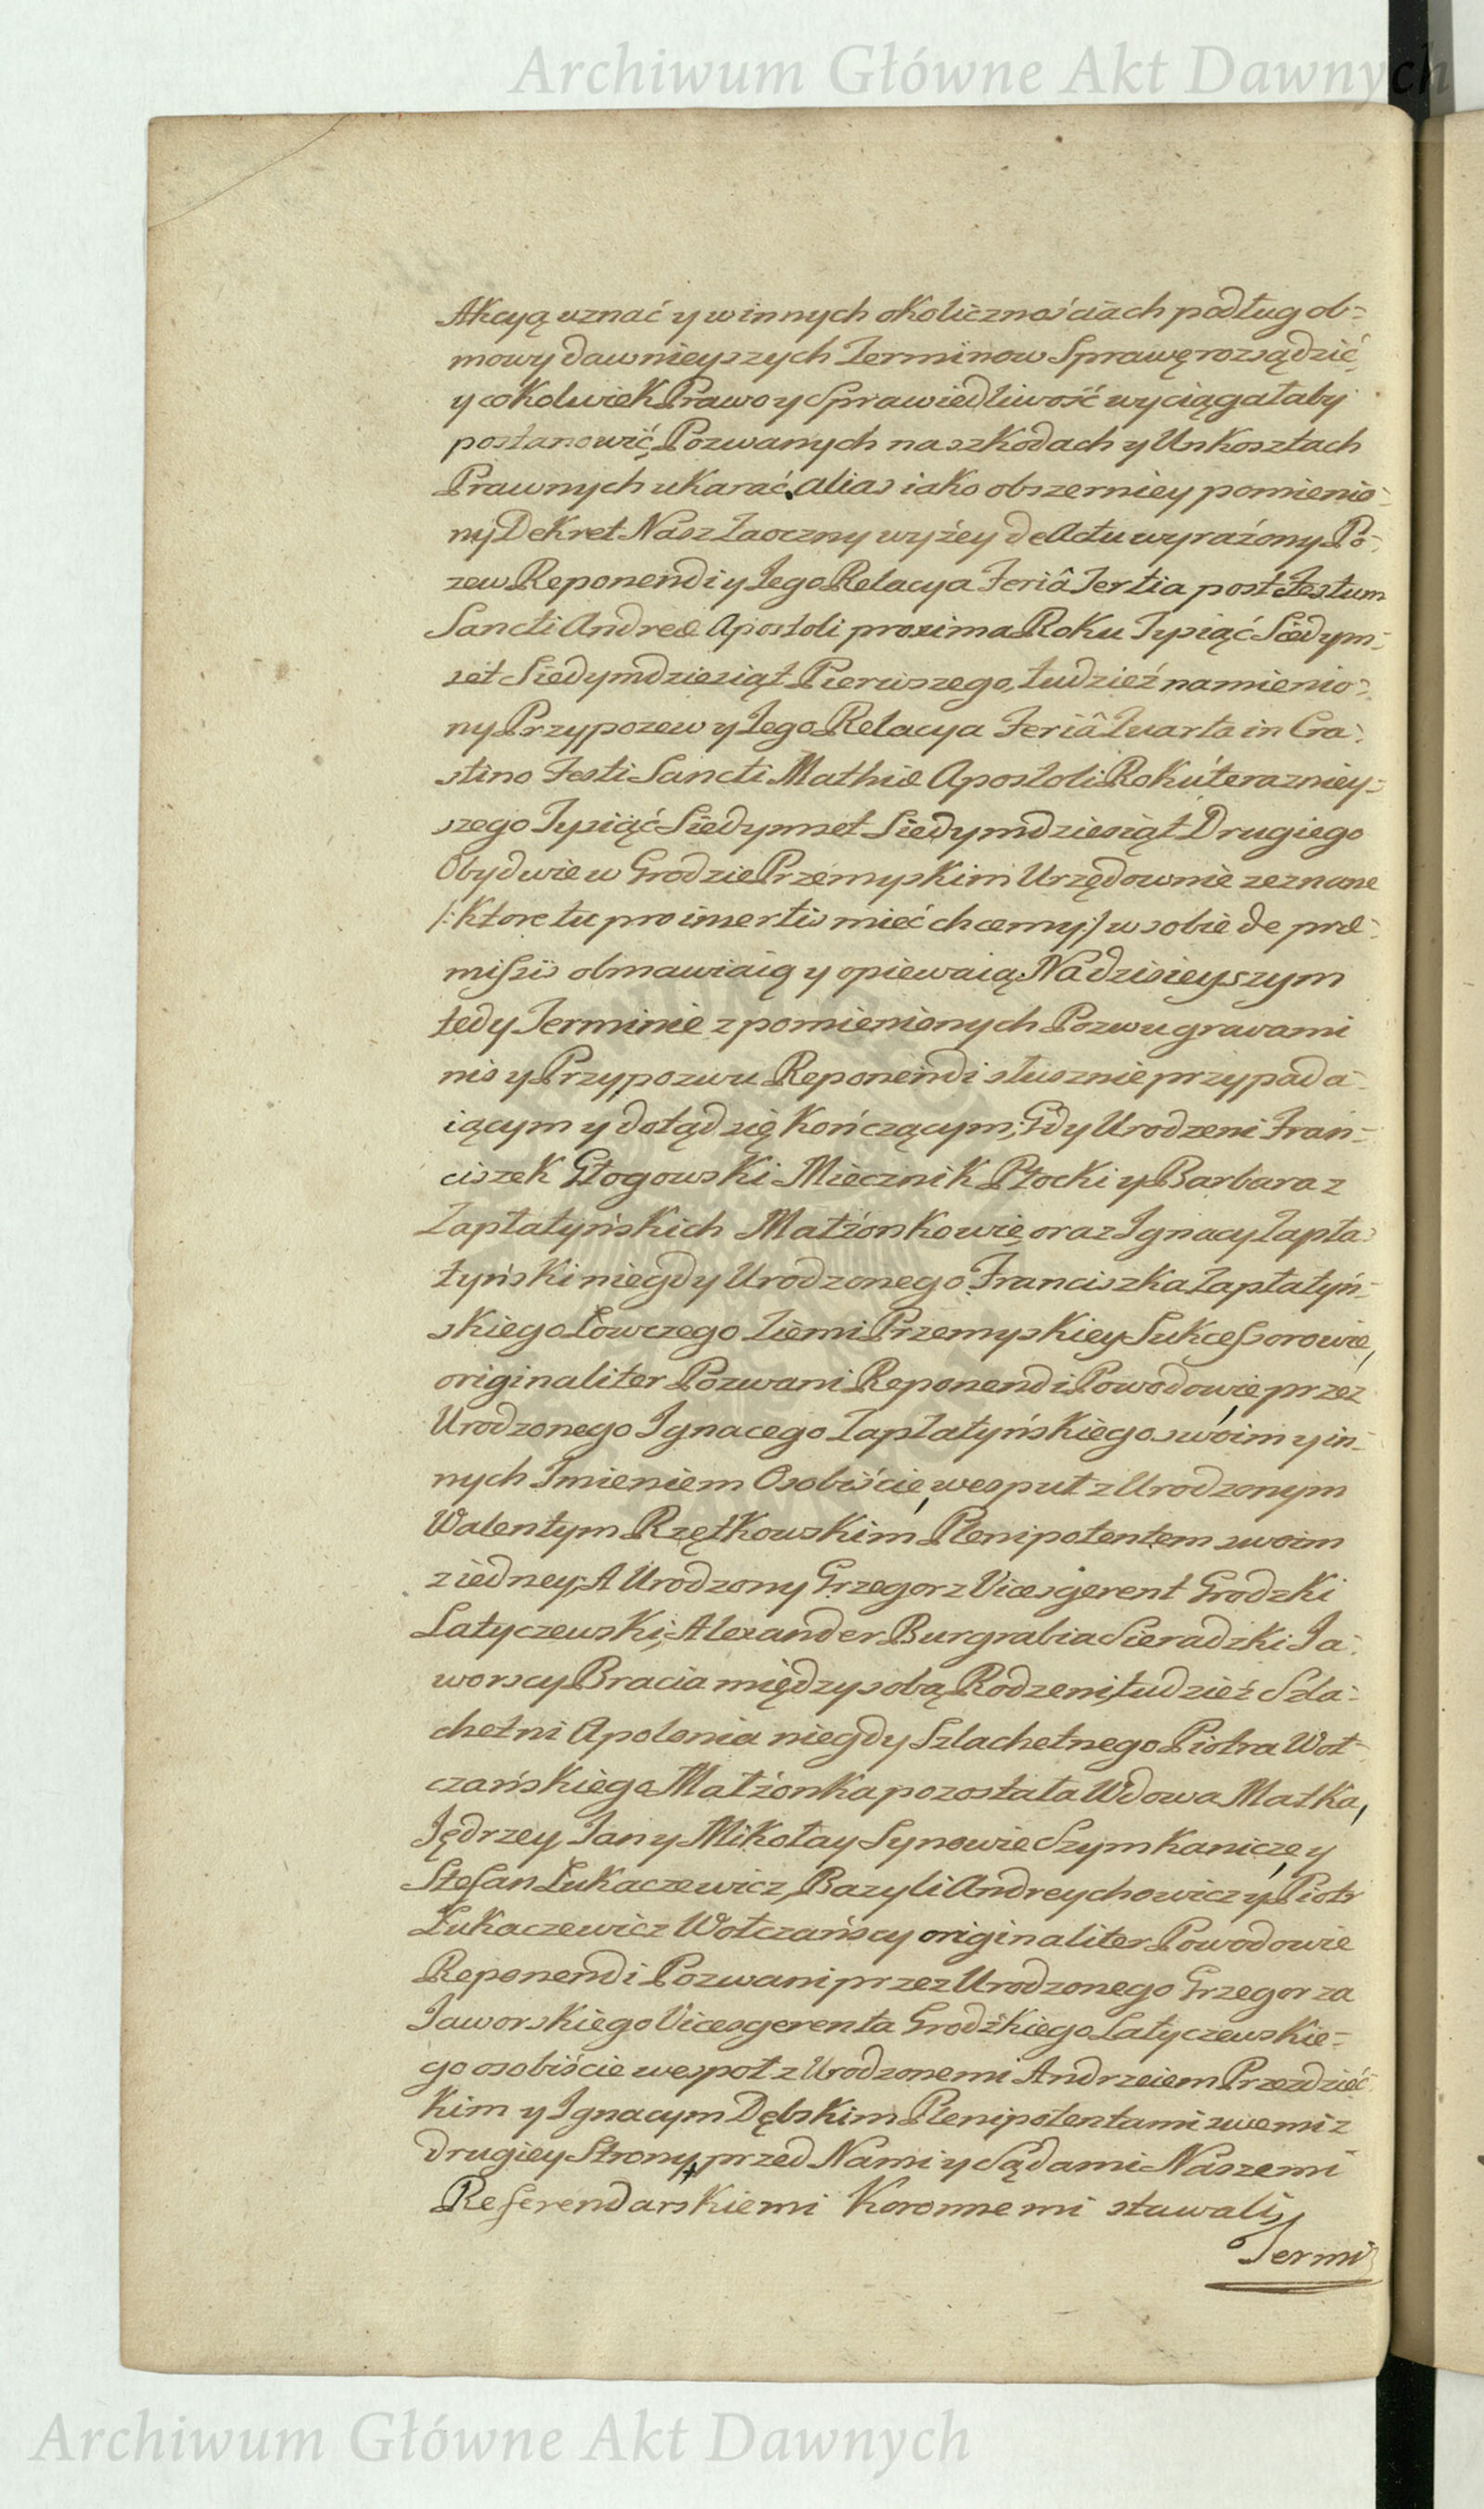 Archiwum Główne Akt Dawnych
Akcyą uznać y w innych okolicznościach podług ob-
mowy dawnieyszych Terminow Sprawę rozsądzić,
y cokolwiek Prawo y Sprawiedliwość wyciągałaby
postanowić, Pozwanych na szkodach y Unkosztach
Prawnych ukarać. alias iako obszerniey pomienio-
ny Dekret Nasz Zaoczny wyżey de Actu wyrażony Po-
zew Reponendi y Jego Relacya Feriâ Tertia post Festum
Sancti Andreæ Apostoli proxima Roku Tysiąć Siedym-
set Siedymdziesiąt Pierwszego, tudzież namienio-
ny Przypozew y Jego Relacya Feriâ Quarta in Cra-
stino Festi Sancti Mathiæ Apostoli Roku terazniey-
szego Tysiąć Siedymset Siedymdziesiąt Drugiego
Obydwie w Grodzie Przemyskim Urzędownie zeznane
/: Ktore tu pro insertis mieć chcemy :/ w sobie de præ-
missis obmawiaią y opiewaią. Na dzisieyszym
tedy Terminie z pomienionych Pozwu gravami
nis y Przypozwu Reponendi słusznie przypada-
iącym y dotąd się kończącym; Gdy Urodzeni Fran-
ciszek Głogowski Miecznik Płocki y Barbara z
Zapłatyńskich Małżonkowie, oraz Ignacy Zapła-
tyński niegdy Urodzonego Franciszka Zapłatyń-
skiego Łowczego Ziemi Przemyskiey Sukcessorowie,
originaliter Pozwani Reponendi Powodowie przez
Urodzonego Ignacego Zapłatyńskiego swoim y in-
nych Imieniem Osobiście, wespuł z Urodzonym
Walentym Rzętkowskim, Plenipotentem swoim
z iedney; A Urodzony Grzegorz Vicesgerent Grodzki
Latyczewski, Alexander Burgrabia Sieradzki Ja-
worscy Bracia między sobą Rodzeni, tudzież Szla-
chetni Apolonia niegdy Szlachetnego Piotra Woł-
czańskiego Małżonka pozostała Wdowa Matka,
Jędrzey Jan y Mikołay Synowie Szymkanicze, y
Stefan Łukaczewicz, Bazyli Andreychowicz y Piotr
Łukaczewicz Wołczańscy originaliter Powodowie
Reponendi Pozwani przez Urodzonego Grzegorza
Jaworskiego Vicesgerenta Grodzkiego Latyczewskie-
go osobiście wespoł z Urodzonemi Andrzeiem Przezdziec-
kim y Ignacym Dębskim Plenipotentami swemi z
drugiey Strony, przed Nami y Sądami Naszemi
Referendarskiemi Koronnemi stawali,
Termi
Archiwum Główne Akt Dawnych